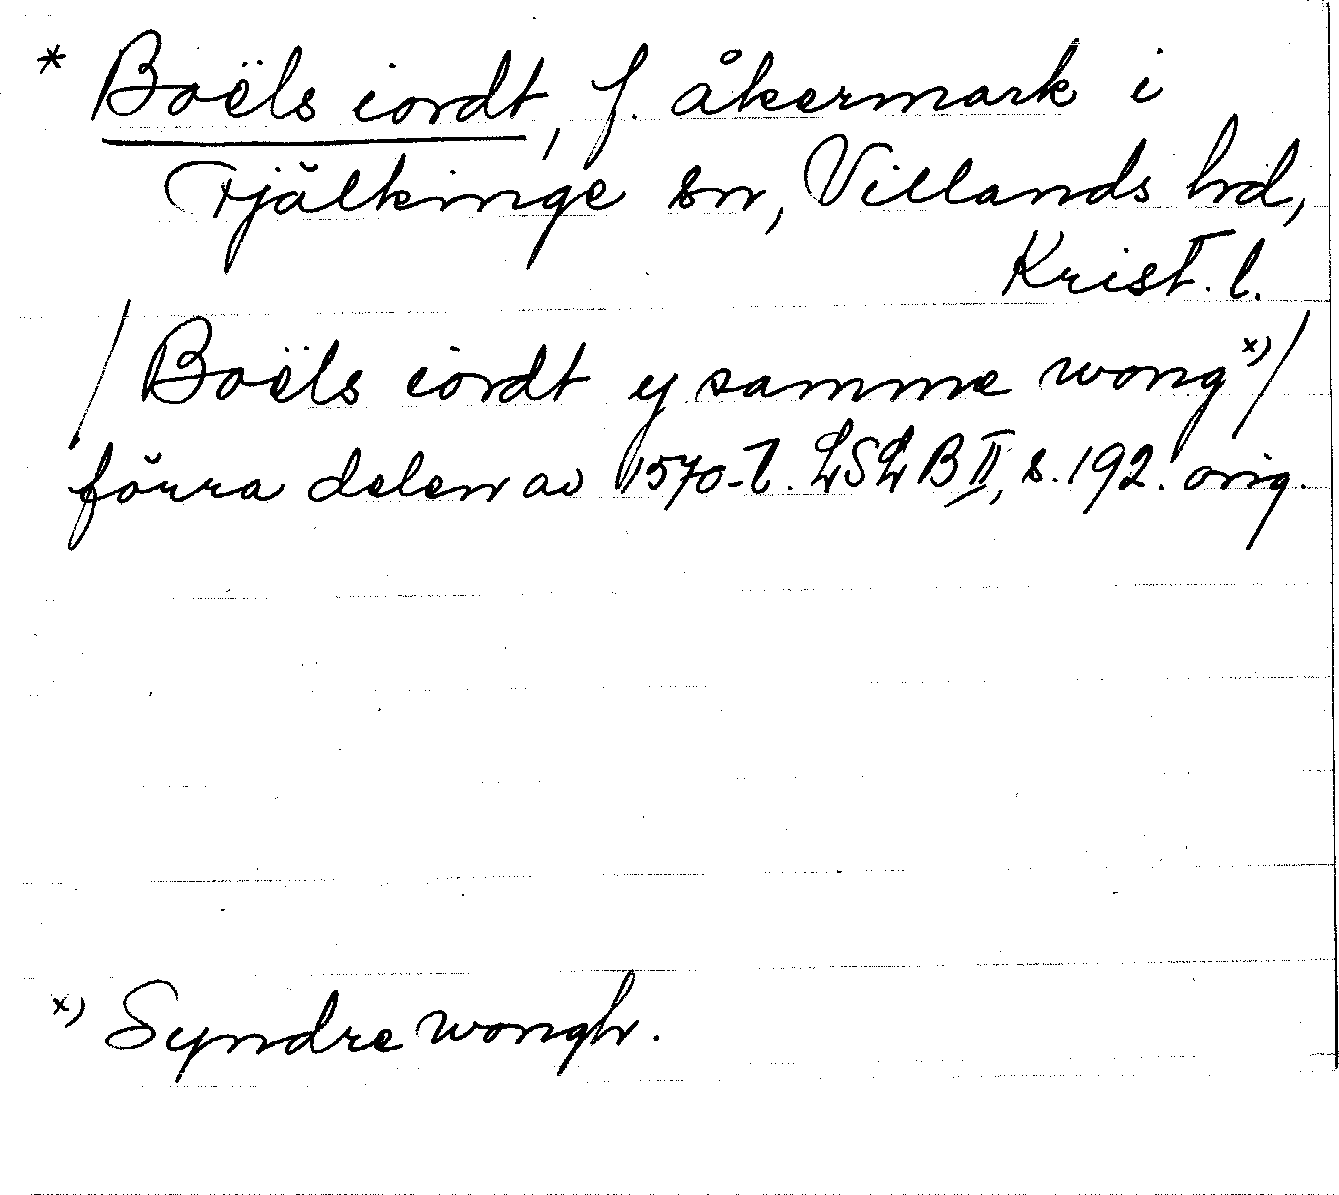 * Boëls iordt, f. åkermark i
Fjälkinge sn, Villands hd,
Krist. l.
/ Boëls iördt y samme wong x) /
förra delen av 1570-t. LSL B II, s. 192. orig.
x) Syndre wongh.